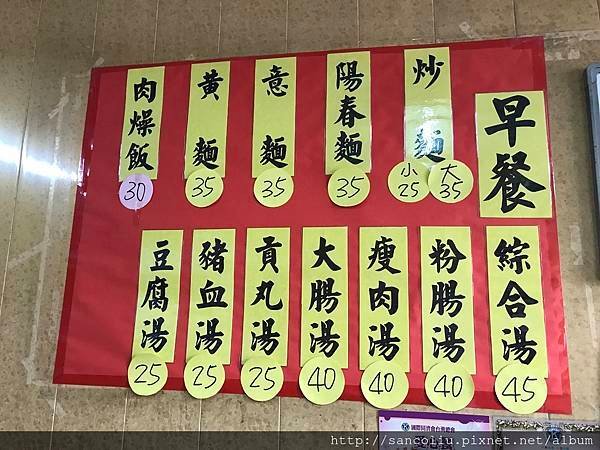 早餐
炒麵
小
25
大
35
陽春麵
35
意麵
35
黃麵
35
肉燥飯
30
綜合湯
45
粉腸湯
40
瘦肉湯
40
大腸湯
40
貢丸湯
25
豬血湯
25
豆腐湯
25
http://sancoliu.pixnet.net/album